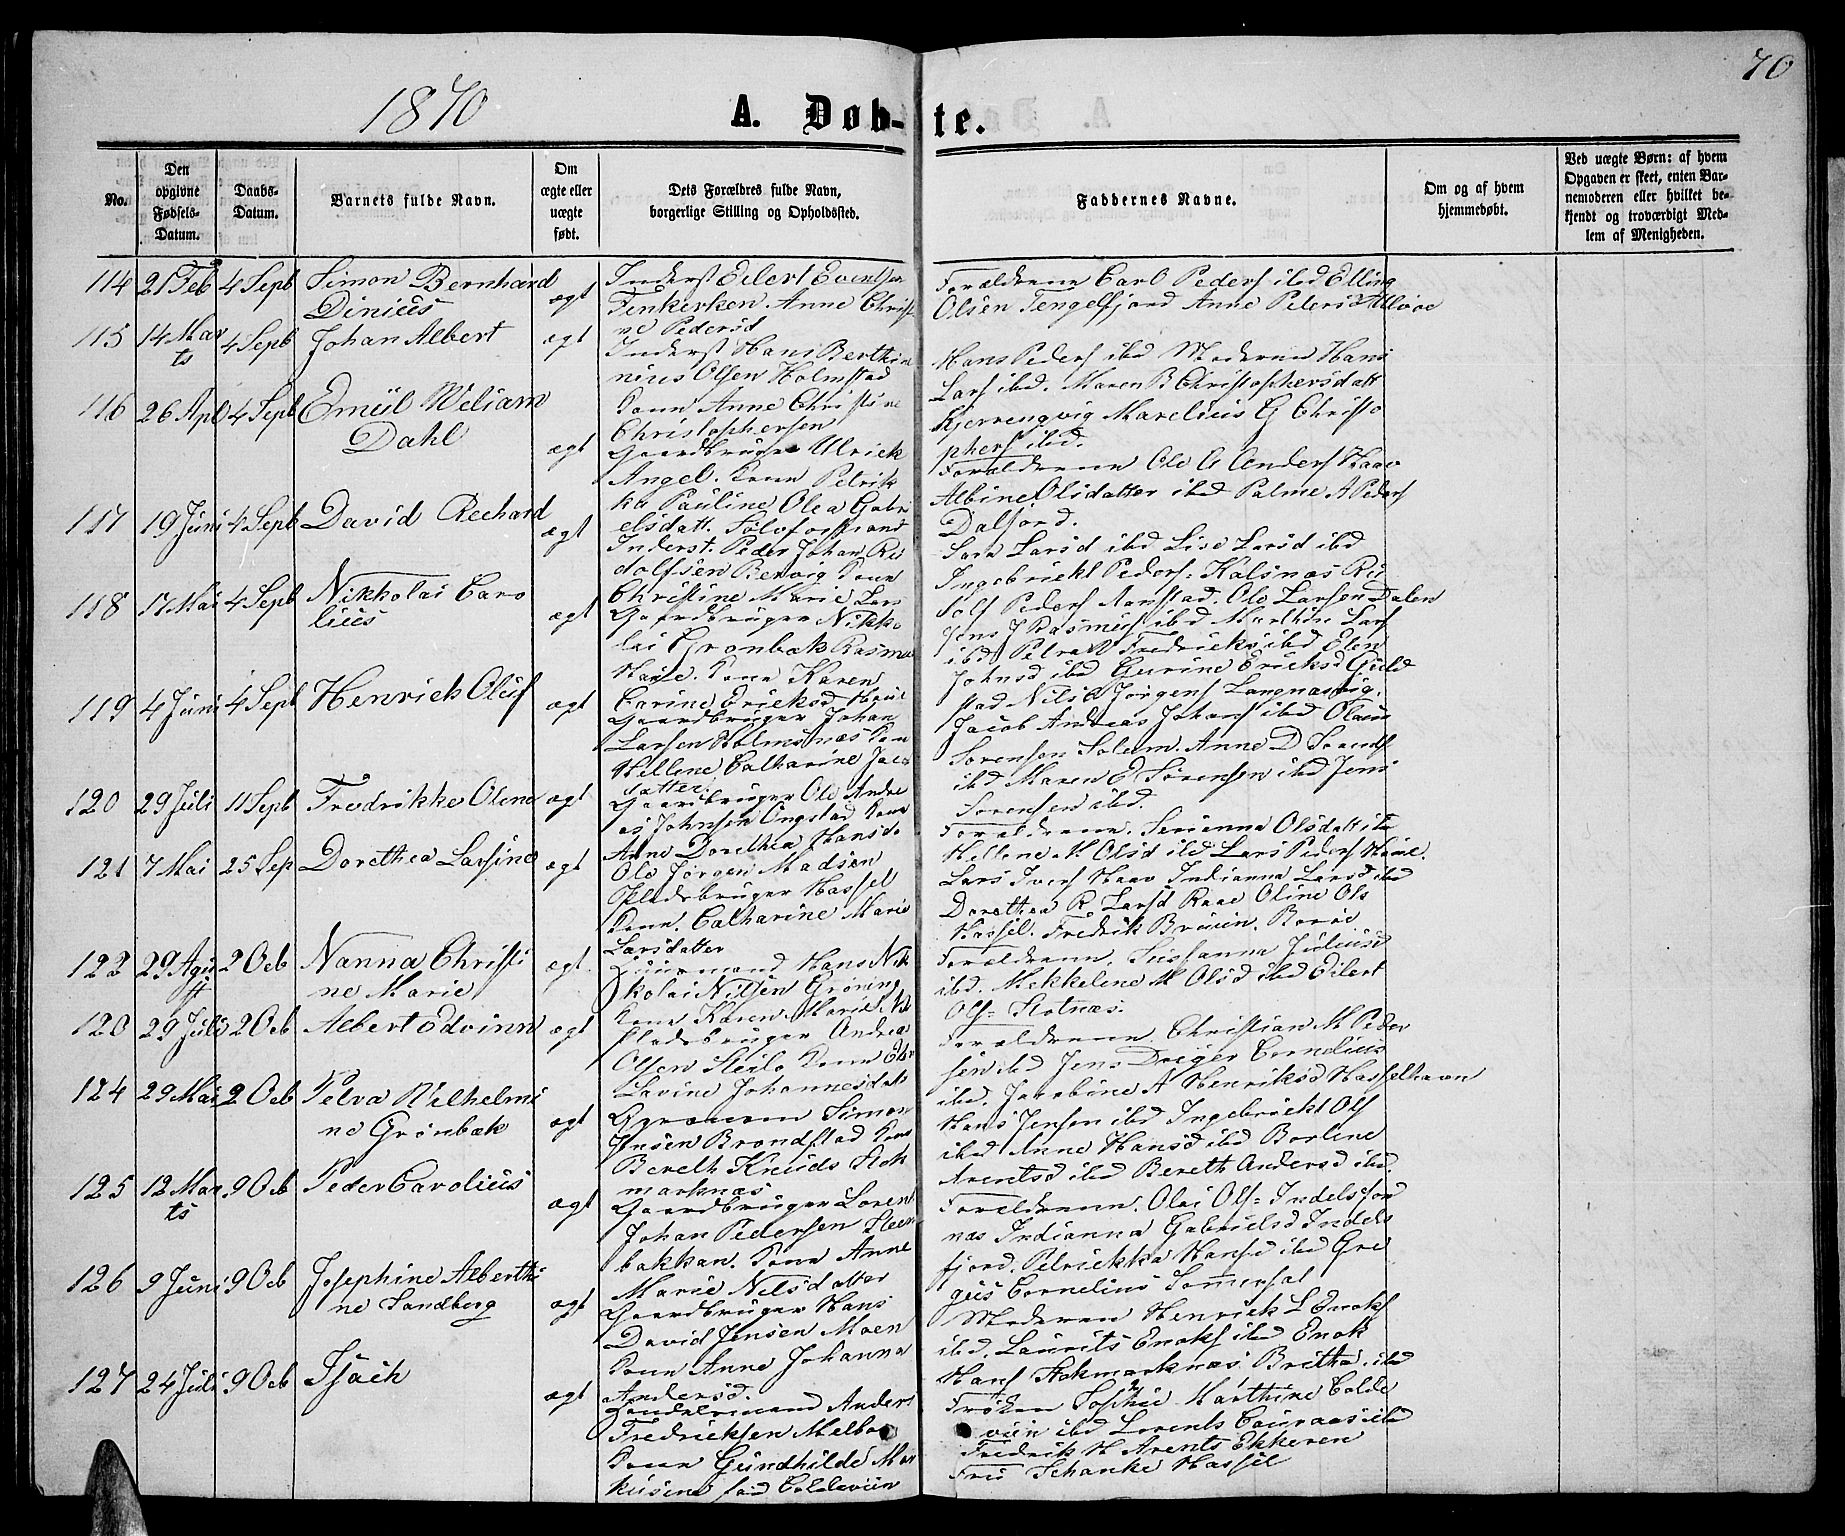 70
1870
A. Døb-
te.
No.
Den
opgivne
Fødsels-
Datum.
Daabs-
Datum.
Barnets fulde Navn.
Om
ægte eller
uægte
født.
Dets Forældres fulde Navn,
borgerlige Stilling og Opholdssted.
Faddernes Navne.
Om og af hvem
hjemmedøbt.
Ved uægte Børn: af hvem
Opgaven er skeet, enten Bar-
nemoderen eller hvilket be-
kjendt og troværdigt Med-
lem af Menigheden.
114 21 Feb 4 Sepb Simon Bernhard
Dinius
ægt
Inderst Eilert Evensen
Tenkerken Anne Christi
ne Pedersd
Forældrene Carl Peders ibd Elling
Olsen Tengelfjord Anne Petersd
115 14 Mar
ts
4 Sepb Johan Albert
ægt
Inderst Hans Berthi
nius Olsen Holmstad
Konn Anne Christine
Christophersen
Hans Peders ibd Moderen Hans
Lars ibd. Maren B Christophersdatt
Kjerrengvig Marelius G Christo
phers ibd.
116 26 Apl 4 Sepb Emiil Weliam
Dahl
ægt
Gaardbruger Ulrick
Angel. Konn Petrik
ka Pauline Olea Gabri
elsdatt.
Forældrene Ole Anders Haav
Albine Olsdatter ibd Palme A Peders
Dalford.
117 19 Juni 4 Sepb David Rechard
ægt
Inderst. Peder Johan Ru
dolfsen Bervig Konn
Christine Marie Lars
Sara Larsd ibd Lise Larsd ibd
Ingebrickt Peders Kalsnæs Ru
dolf Peders Aanstad. Ole Larsen Dalen
118 17 Mai 4 Sepb Nikkolai Caro
lius
ægt
Gaardbruger Nikko
lai Gronbæk Rasmus
Konn Karen
Carine Ericksd
Jens J Rasmus ibd Marthin Lars
ibd Petra Fredricks ibd Elen
Johnsd ibd Gurine Ericksd Guld
stad Nils Jørgens Langnæsvig.
119 4 Juni 4 Sepb Henrich Oluf
ægt
Gaardbruger Johan
Larsen Holmsnæs Kon
Hellene Catharine Jaco
datter
Jacob Andreas Johans ibd Olaus
Sørensen Solem. Anne D Sørens
ibd Maren E Sørensen ibd Jens
Sørensen ibd.
120 29 Juli 11 Sepb Fredrikke Olena
ægt
Gaardbruger Ole Andre
as Johnsen Ongstad Konn
Anne Dorethea Hansd
Forældrene. Serianna Olsdatt ibd
Hellene M Olsd ibd Lars Peders
121 7 Mai 25 Sep Dorethea Larsine
ægt
Ole Jørgen Madsen
Pladsbruger Hassel
Konn. Catharine Marie
Larsdatter
Lars Ivers Haav Indianna Larsd ibd
Dorethea R Larsd Raae Oline Ols
Hassel. Fredrik Bruun. Borøe
122 29 Agu
st
2 Ocb Nanna Christi
ne Marie
ægt.
Hans Nik
kolai Nilsen Grøning
Konn Karen Marie
Forældrene. Sussanna Juliusd
ibd. Mekkelene M Olsd ibd Eilert
Ols Slotnæs.
120 29 Juli 2 Ocb Albert Edvinn
ægt
Pladsbruger Andrea
Olsen Steilo Konn
Lavine Johannesdatt
Forældrene. Christian M Peder
sen ibd Jens Dreyer Cornelius
ibd. Jacobine A Henriksd Hasselhavn
124 29 Mai 2 Ocb Petra Wilhelmi
ne Grönbæk
ægt
Simon
Jensen Brandstad Konn
Bereth Knuds Stok
marknæs
Hans Jensen ibd Ingebrickt Ols
ibd Anne Hansd ibd Borlene
Arentsd ibd Bereth Andersd ibd.
125 12 Mar
ts
9 Ocb Peder Carolius
ægt
Gaardbruger Lorent
Johan Pedersen Steen
bakkan. Konn Anne
Marie Nilsdatter
Forældrene. Olai Ols Indelsfjord
næs Indianna Gabrielsd Indels
fjord. Petrickka Hansd ibd Gre
gus Cornelius Sommersat
126 9 Juni 9 Ocb Josephine Alberthi
ne Sandberg
ægt
Gaardbruger Hans
David Jensen Moen
Konn Anne Johanna
Andersd.
Moderen Henrick L Enoks
ibd. Laurits Enoks ibd Enok
Hans Stokmarknæs. Britha ibd
127 24 Juli 9 Ocb Isach
ægt
Handelsmand Anders
Fredricksen Melbo
Konn Gundhilde Mar
kusine fød Coldevin
Frøken Sophie Marthine Colde
vin ibd Lorents Couraas ibd
Fredrik H Arents Ekkeren
Fru Schanke Hassel